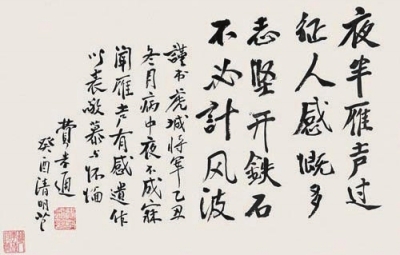 夜半雁声过
征人感慨多
志坚开鉄石
不必計风波
謹书虎城将军乙丑
冬月病中夜不成寐
闻雁声有感遗作
以表敬慕与怀
费孝通
癸酉清明节